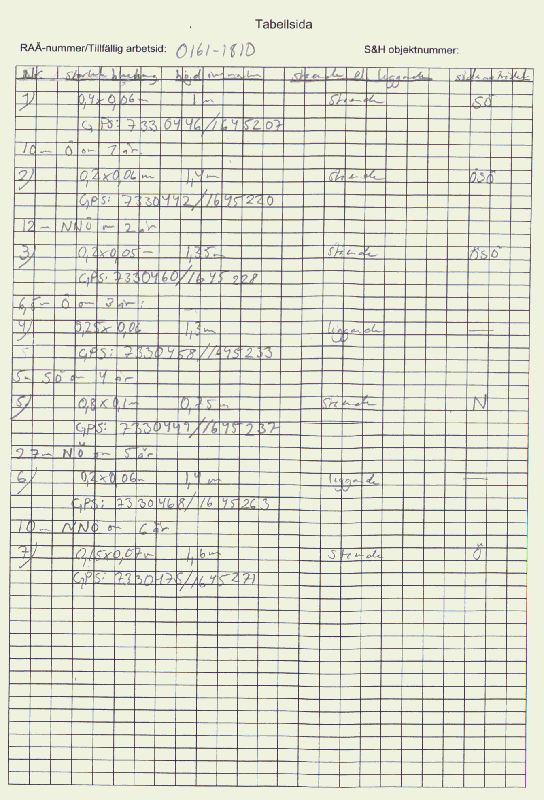 Tabellsida
RAÄ-nummer/Tillfällig arbetsid: 0161-181D S&H objektnummer:
Nr. storlek höjd stående el liggande
1) 0,4x0,06m 1m stående SÖ
GPS: 7330446/1645207
10m Ö om 1 är
2) 0,2x0,06m 1,4m stående ÖSÖ
GPS: 7330442/1645220
12m NNÖ om 2 är
3) 0,2x0,05m 1,35m stående ÖSÖ
GPS: 7330460/1645228
6,5m Ö om 3 är:
4) 0,25x0,06 1,3m liggande —
GPS: 7330458/1645233
5m SÖ om 4 är
5) 0,8x0,1m 0,75m stående N
GPS: 7330449/1645237
27m NÖ om 5 är
6) 0,2x0,06m 1,4m liggande —
GPS: 7330468/1645263
10m NNÖ om 6 är
7) 0,15x0,07m 1,6m stående Ö
GPS: 7330475/1645271